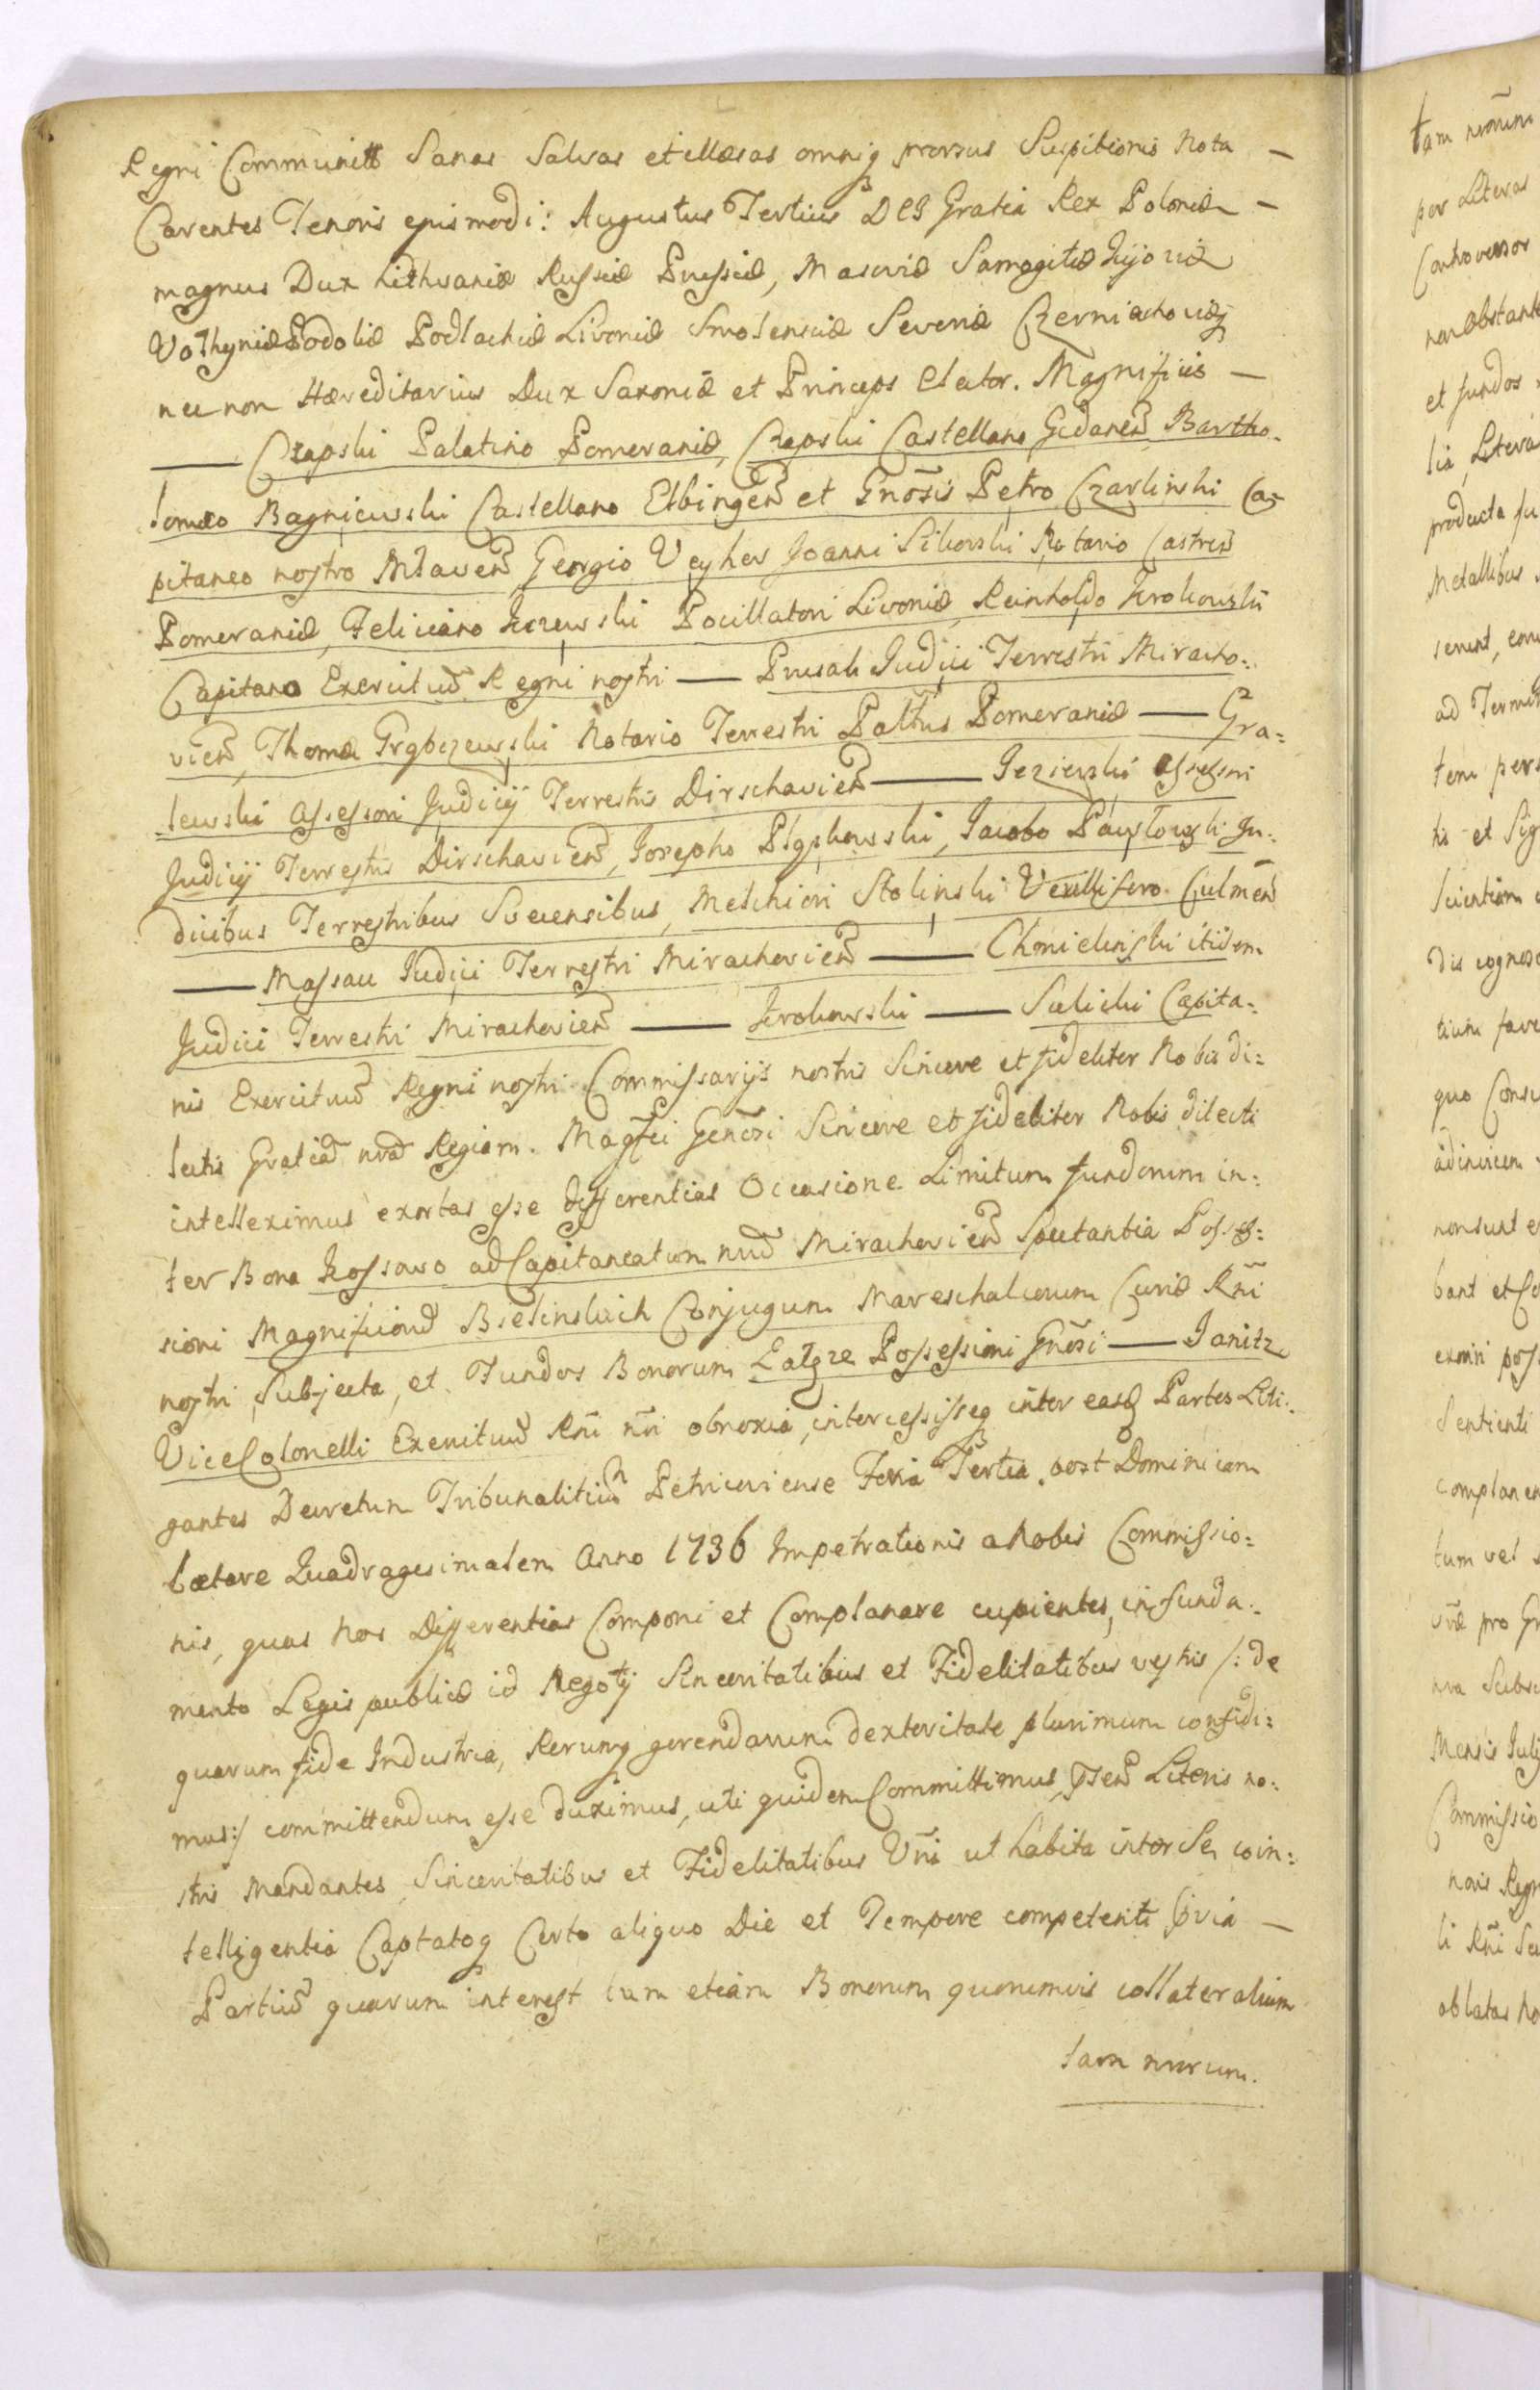 Regni Communitt Sanas Salvas et illæsas omniq prorsus Suspitionis Nota —
Carentes Tenoris ejusmodi: Augustus Tertius DEI Gratia Rex Poloniæ —
magnus Dux Lithvaniæ Russiæ Prussiæ, Masoviæ Samogitiæ Kijoviæ
Volhyniæ Podoliæ Podlachiæ Livoniæ Smolensciæ Severiæ Czerniechoviæq
nec non Hæreditarius Dux Saxoniæ et Princeps Elector. Magnificis —
— Czapski Palatino Pomeraniæ, Czapski Castellano Gedanen Bartho-
lomæo Bagniewski Castellano Elbingen et Gnosis Petro Czarlinski Ca-
pitaneo nostro Mlaven Georgio Veyher Joanni Sikorski Notario Castren
Pomeraniæ, Feliciano Kczewski Pocillatori Livoniæ, Reinholdo Krokowski
Capitano Exercituu Regni nostri — Prusak Judici Terrestri Miracho-
vien, Thomæ Grąbczewski Notario Terrestri Paltus Pomeraniæ — Gra-
lewski Assessori Judicij Terrestris Dirschavien — Jezierski Assessori
Judicij Terrestris Dirschavien, Josepho Pląskowski, Jacobo Pawłowski Ju-
dicibus Terrestribus Suecensibus, Melchiori Stolinski Vexillifero Culmen
— Massau Judici Terrestri Mirachovien — Chmielinski itidem
Judici Terrestri Mirachovien — Krokowski — Sulicki Capita-
nis Exercituu Regni nostri Commissarijs nostris Sincere et fideliter Nobis di-
lectis Gratia nra Regiam. Magfci Genosi Sincere et fideliter Nobis dilecti
intelleximus exortas esse differentias Occasione Limitum fundorum in-
ter Bona Kossowo ad Capitaneatum nrum Mirachovien Spectantia Posses-
sioni Magnificoru Bielinskich Conjugum Mareschalcorum Curiæ Rni
nostri Subjecta, et Fundos Bonorum Łątze Possessioni Gnosi — Janitz
ViceColonelli Exercituu Rni nri obnoxia, intercessisseq inter easq Partes Liti-
gantes Decretum Tribunalitiu Petricoviense Feria Tertia post Dominicam
Lætare Quadragesimalem Anno 1736 Impetrationis a Nobis Commissio-
nis, quas Nos Differentias Componi et Complanare cupientes, in funda-
mento Legis publicæ id Negotij Sinceritatibus et Fidelitatibus vestris /: de
quarum fide Industria, Rerumq gerendarum dexteritate plurimum confidi-
mus :/ committendum esse duximus, uti quidem Committimus, psen Literis no-
stris Mandantes Sinceritatibus et Fidelitatibus Vris ut habita inter Se coin-
telligentia Captatoq Certo aliquo Die et Tempore competenti pvia —
Partiu quarum interest tum etiam Bonorum quorumvis collateralium
tam nrorum.
tam nrorum
per Literas
Controversor
non obstante
et fundos
lia, Litera
producta fu
Metallibus
ad Termin
tem pers
tis et Sig
Scientiam
dis cognosc
tium fave
quo Consc
adinvicem
non sunt e
bant et Co
Sentienti
complanen
tum vel
vræ pro Gr
nra Subsc
Mensis Julij
Commissio
noris Regn
li Rni Su
oblatas No